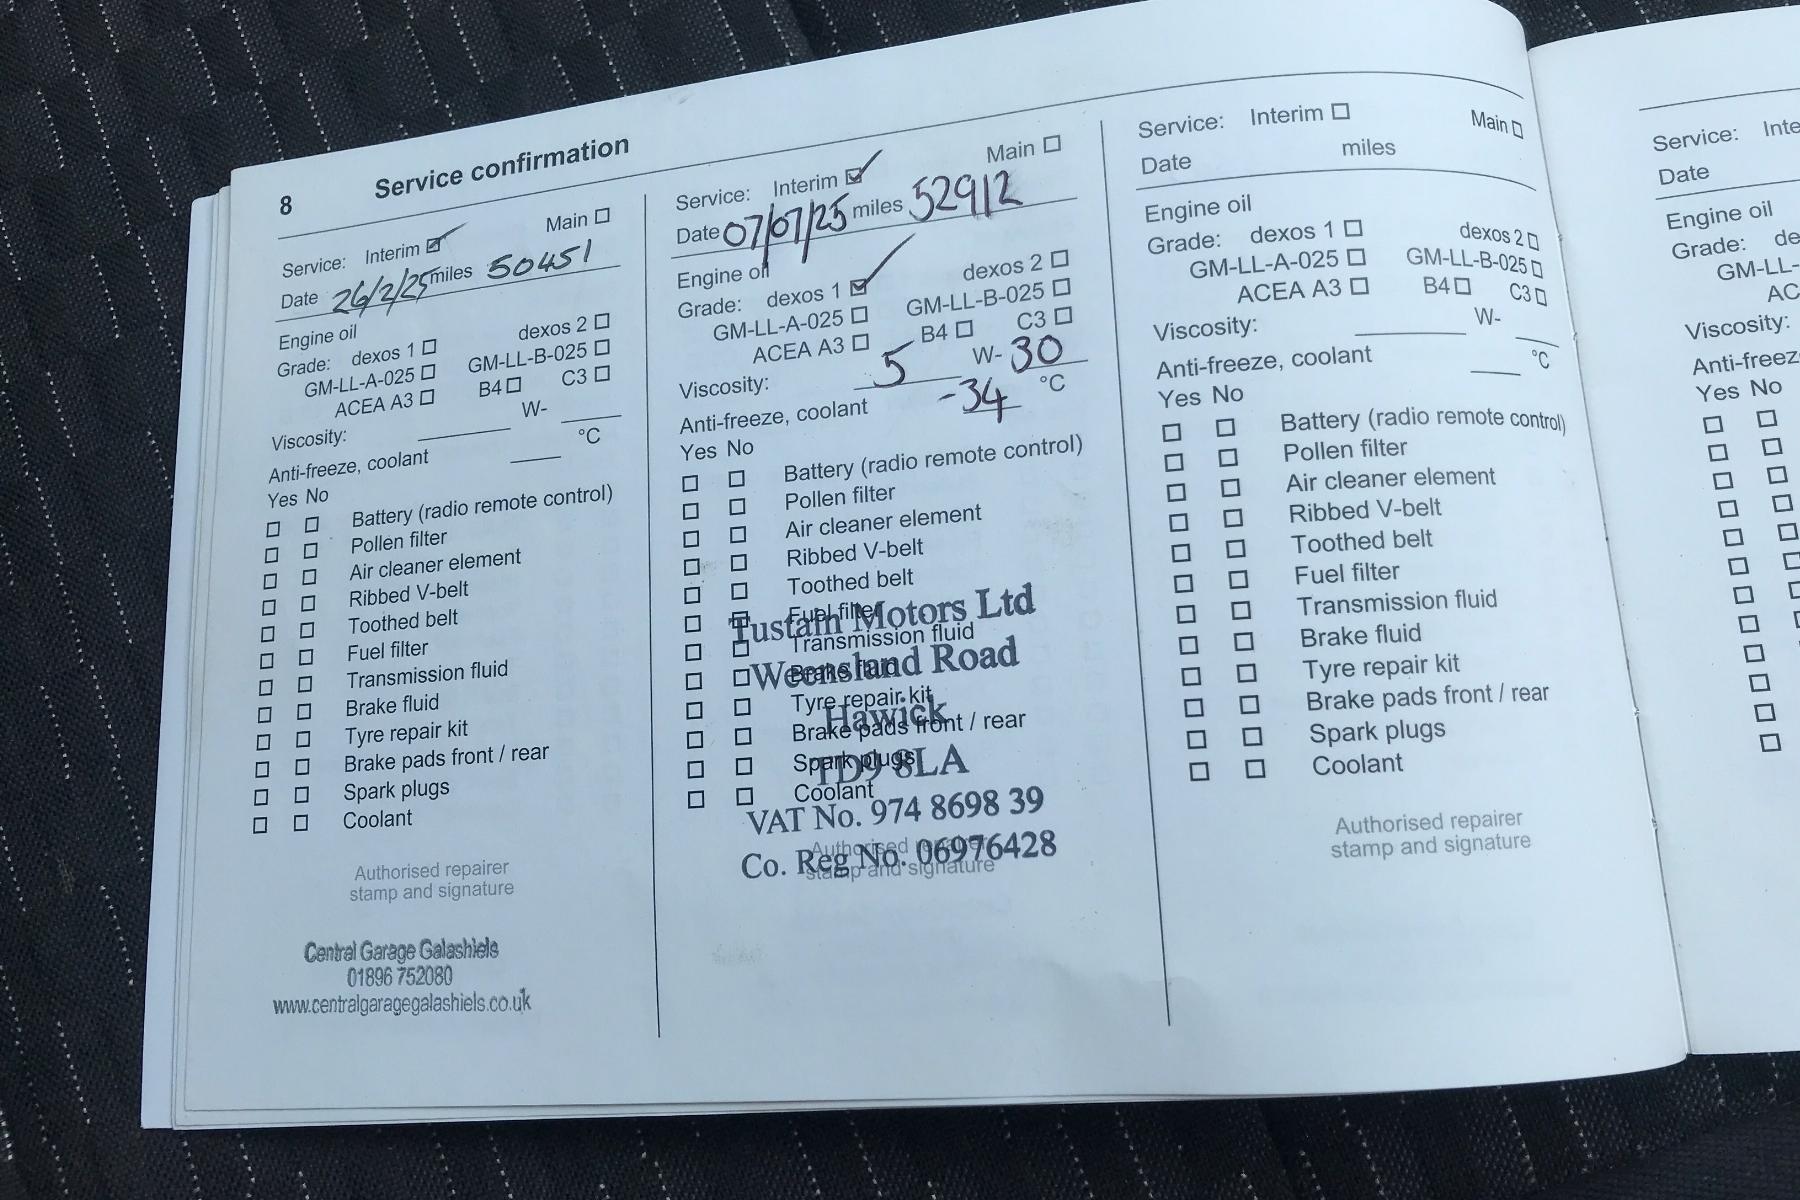 8 Service confirmation
Service: Interim Main
Date 26/2/25 miles 50451
Engine oil
Grade: dexos 1 dexos 2
GM-LL-A-025 GM-LL-B-025
ACEA A3 B4 C3
Viscosity: W-
Anti-freeze, coolant °C
Yes No
Battery (radio remote control)
Pollen filter
Air cleaner element
Ribbed V-belt
Toothed belt
Fuel filter
Transmission fluid
Brake fluid
Tyre repair kit
Brake pads front / rear
Spark plugs
Coolant
Authorised repairer
stamp and signature
Central Garage Galashiels
01896 752080
www.centralgaragegalashiels.co.uk
Service: Interim Main
Date 07/07/25 miles 52912
Engine oil
Grade: dexos 1 dexos 2
GM-LL-A-025 GM-LL-B-025
ACEA A3 B4 C3
Viscosity: 5 W- 30
Anti-freeze, coolant -34 °C
Yes No
Battery (radio remote control)
Pollen filter
Air cleaner element
Ribbed V-belt
Toothed belt
Fuel filter
Transmission fluid
Brake fluid
Tyre repair kit
Brake pads front / rear
Spark plugs
Coolant
Authorised repairer
stamp and signature
Tustain Motors Ltd
Weensland Road
Hawick
TD9 8LA
VAT No. 974 8698 39
Co. Reg No. 06976428
Service: Interim Main
Date miles
Engine oil
Grade: dexos 1 dexos 2
GM-LL-A-025 GM-LL-B-025
ACEA A3 B4 C3
Viscosity: W-
Anti-freeze, coolant °C
Yes No
Battery (radio remote control)
Pollen filter
Air cleaner element
Ribbed V-belt
Toothed belt
Fuel filter
Transmission fluid
Brake fluid
Tyre repair kit
Brake pads front / rear
Spark plugs
Coolant
Authorised repairer
stamp and signature
Service: Inte
Date
Engine oil
Grade: de
GM-LL-
AC
Viscosity:
Anti-freez
Yes No